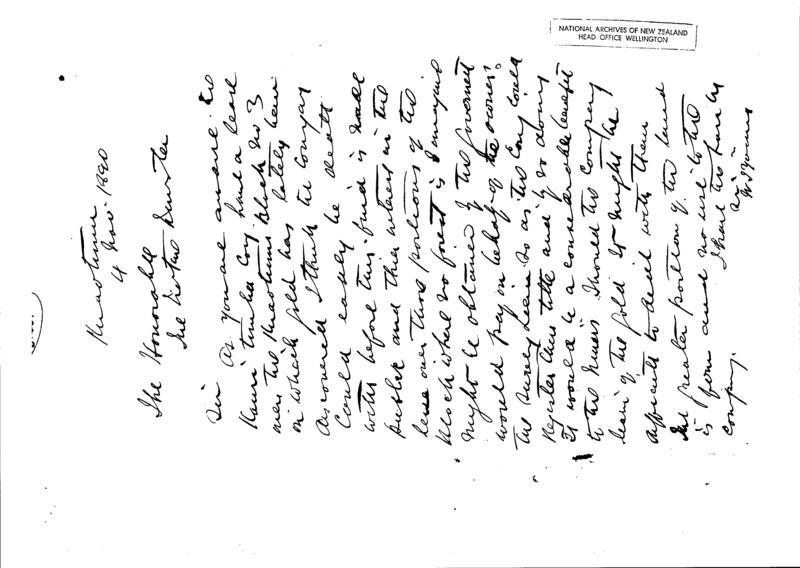 NATIONAL ARCHIVES OF NEW ZEALAND
HEAD OFFICE WELLINGTON
Kuaotunu
4 Nov. 1890
The Honorable
The Native Minister
Sir As you are aware the
Kauri timber Coy have a lease
over the Kuaotunu Block No 3
on which gold has lately been
discovered I think the Company
could easily be dealt
with before this find is made
public and their interest in the
lease over those portions of the
Block where no forest is remaining
might be obtained if the Government
would pay on behalf of the owners
the Survey Lien so as the Coy could
Register their title and by so doing
it would be a considerable benefit
to the miners Should the Company
learn of the gold it might be
difficult to deal with them
The greater portion of the land
is open and no use to the
company. I have the honor
Sir